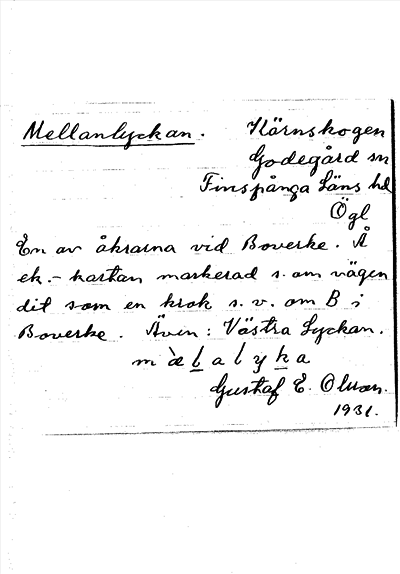 Mellanlyckan. Kärnskogen
Godegård sn
Finspånga Läns hd
Ögl
En av åkrarna vid Boverke. Å
ek.-kartan markerad s. om vägen
dit som en krok s.v. om B i
Boverke. Även: Västra Lyckan.
mælalyka
Gustaf E. Olsson.
1931.